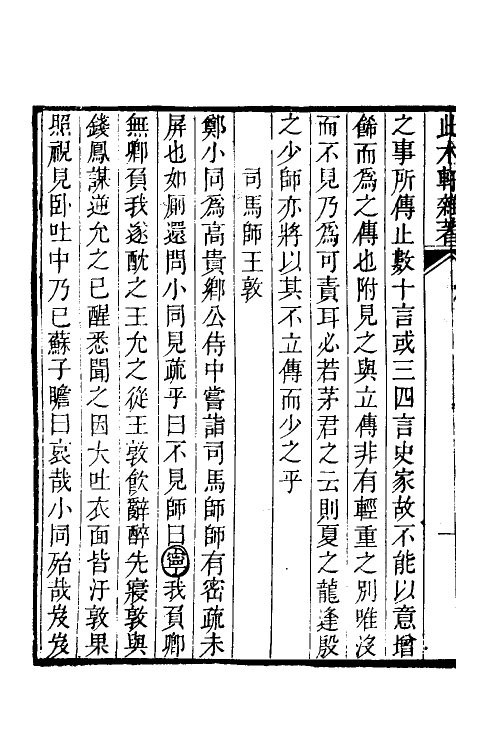 此木軒雜著
之事所傳止數十言或三四言史家故不能以意增
餙而爲之傳也附見之與立傳非有輕重之別唯沒
而不見乃爲可責耳必若茅君之云則夏之龍逢殷
之少師亦將以其不立傳而少之乎
司馬師王敦
鄭小同爲高貴鄉公侍中嘗詣司馬師師有密疏未
屏也如厠還問小同見疏乎曰不見師曰寧我負卿
無卿負我遂酖之王允之從王敦飲辭醉先寢敦與
錢鳳謀逆允之已醒悉聞之因大吐衣面皆汙敦果
照視見卧吐中乃已蘇子瞻曰哀哉小同殆哉岌岌